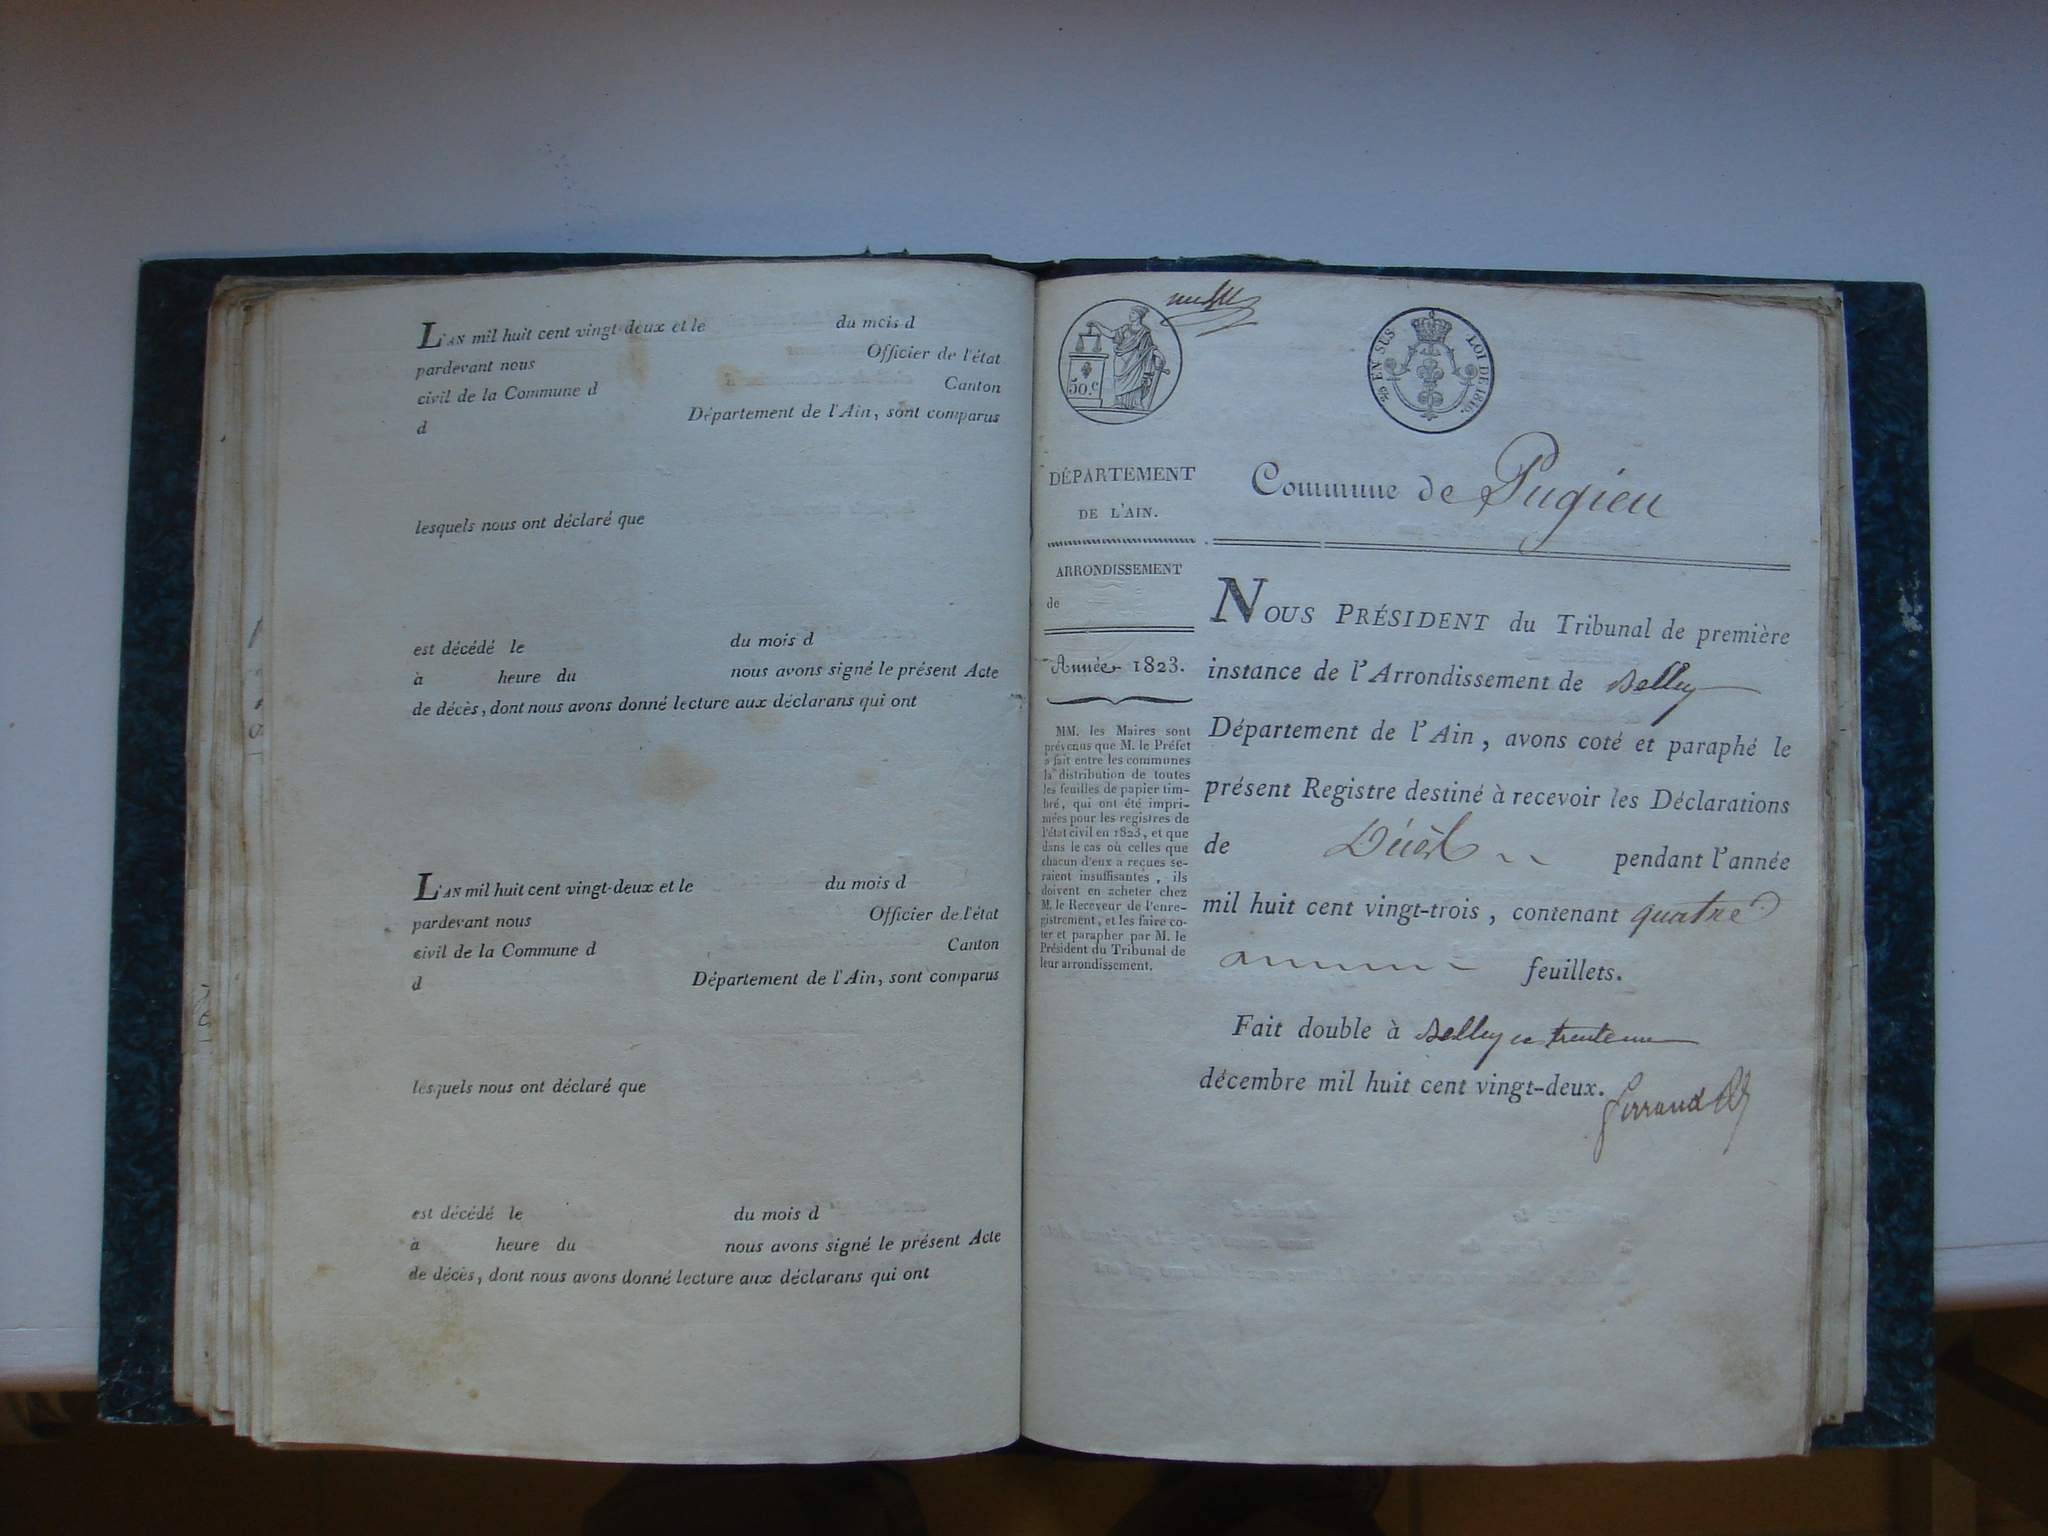 L'AN mil huit cent vingt-deux et le du mois d
pardevant nous Officier de l'état
civil de la Commune d Canton
d Département de l'Ain, sont comparus
lesquels nous ont déclaré que
est décédé le du mois d
à heure du nous avons signé le présent Acte
de décès, dont nous avons donné lecture aux déclarans qui ont
L'AN mil huit cent vingt-deux et le du mois d
pardevant nous Officier de l'état
civil de la Commune d Canton
d Département de l'Ain, sont comparus
lesquels nous ont déclaré que
est décédé le du mois d
à heure du nous avons signé le présent Acte
de décès, dont nous avons donné lecture aux déclarans qui ont
50.c
EN SUS LOI DE 1816.
DÉPARTEMENT
DE L'AIN.
ARRONDISSEMENT
de
Année 1823.
MM. les Maires sont
prévenus que M. le Préfet
a fait entre les communes
la distribution de toutes
les feuilles de papier tim-
bré, qui ont été impri-
mées pour les registres de
l'état civil en 1823, et que
dans le cas où celles que
chacun d'eux a reçues se-
raient insuffisantes, ils
doivent en acheter chez
M. le Receveur de l'enre-
gistrement, et les faire co-
ter et parapher par M. le
Président du Tribunal de
leur arrondissement.
Commune de Pugieu
NOUS PRÉSIDENT du Tribunal de première
instance de l'Arrondissement de Belley
Département de l'Ain, avons coté et paraphé le
présent Registre destiné à recevoir les Déclarations
de Décès pendant l'année
mil huit cent vingt-trois, contenant quatre
feuillets.
Fait double à Belley le trente un
décembre mil huit cent vingt-deux.
Ferrand